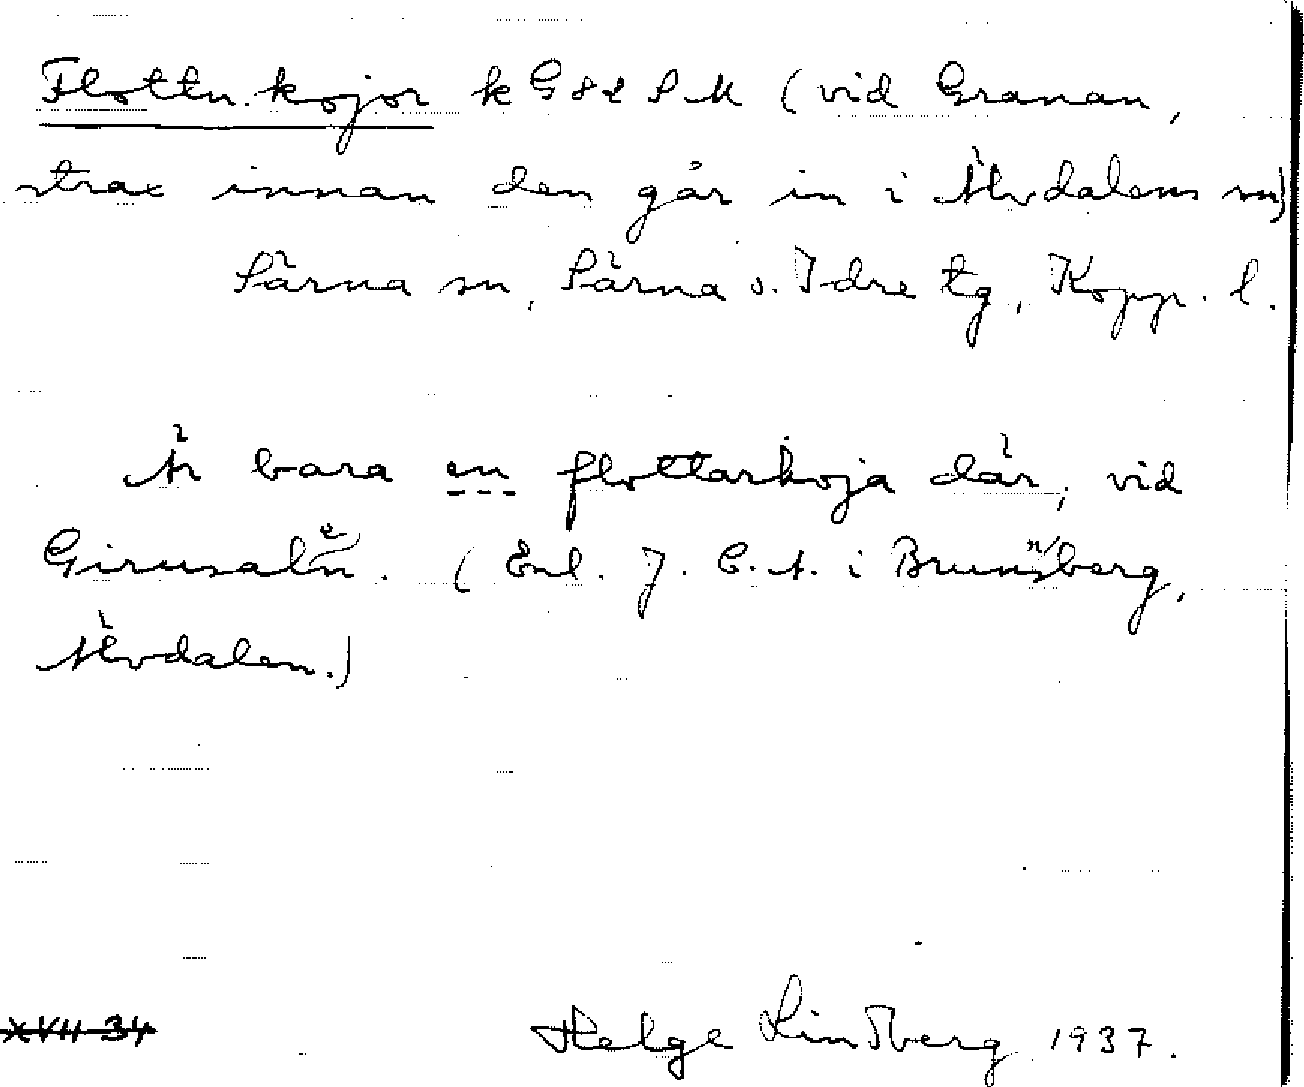 Flottn. kojor k G 82 S M (vid Granan,
strax innan den går in i Älvdalens sn)
Särna sn, Särna o. Idre tg, Kopp. l.
Är bara en flottarkoja där, vid
Girusalen. (Enl. J. E. A. i Brunnsberg,
Älvdalen.)
XVII 34
Helge Lindberg 1937.